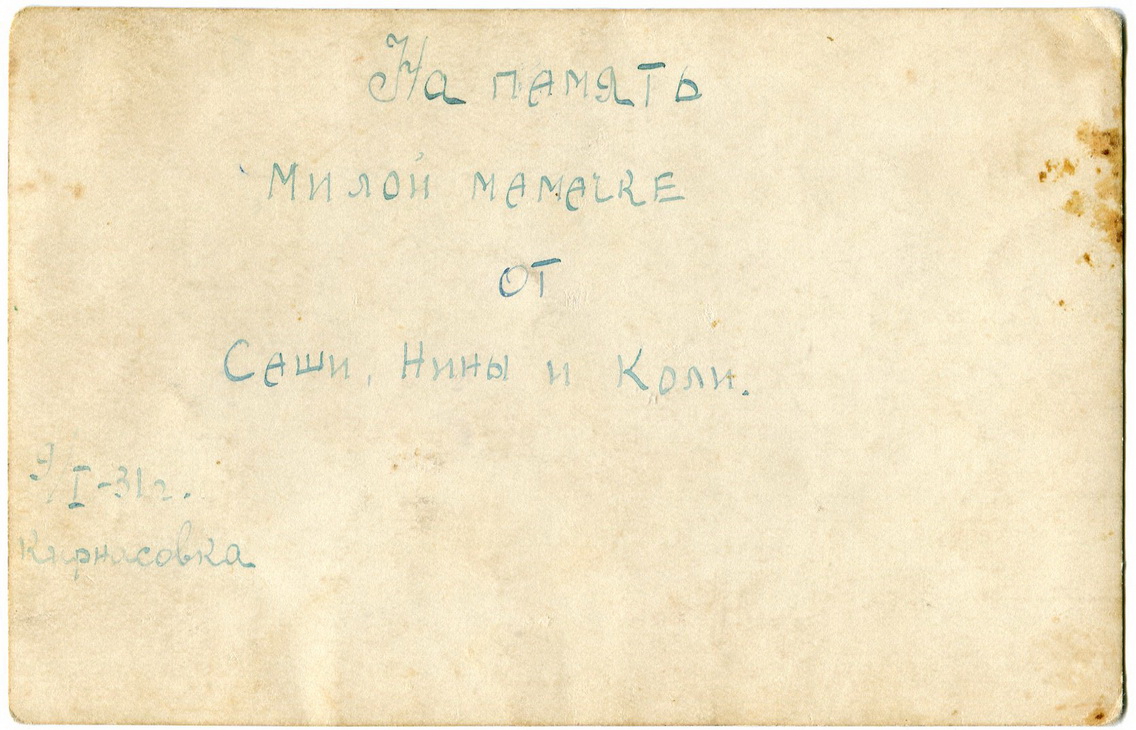 На память
Милой мамачке
от
Саши, Нины и Коли.
I-31г.
Кирнасовка